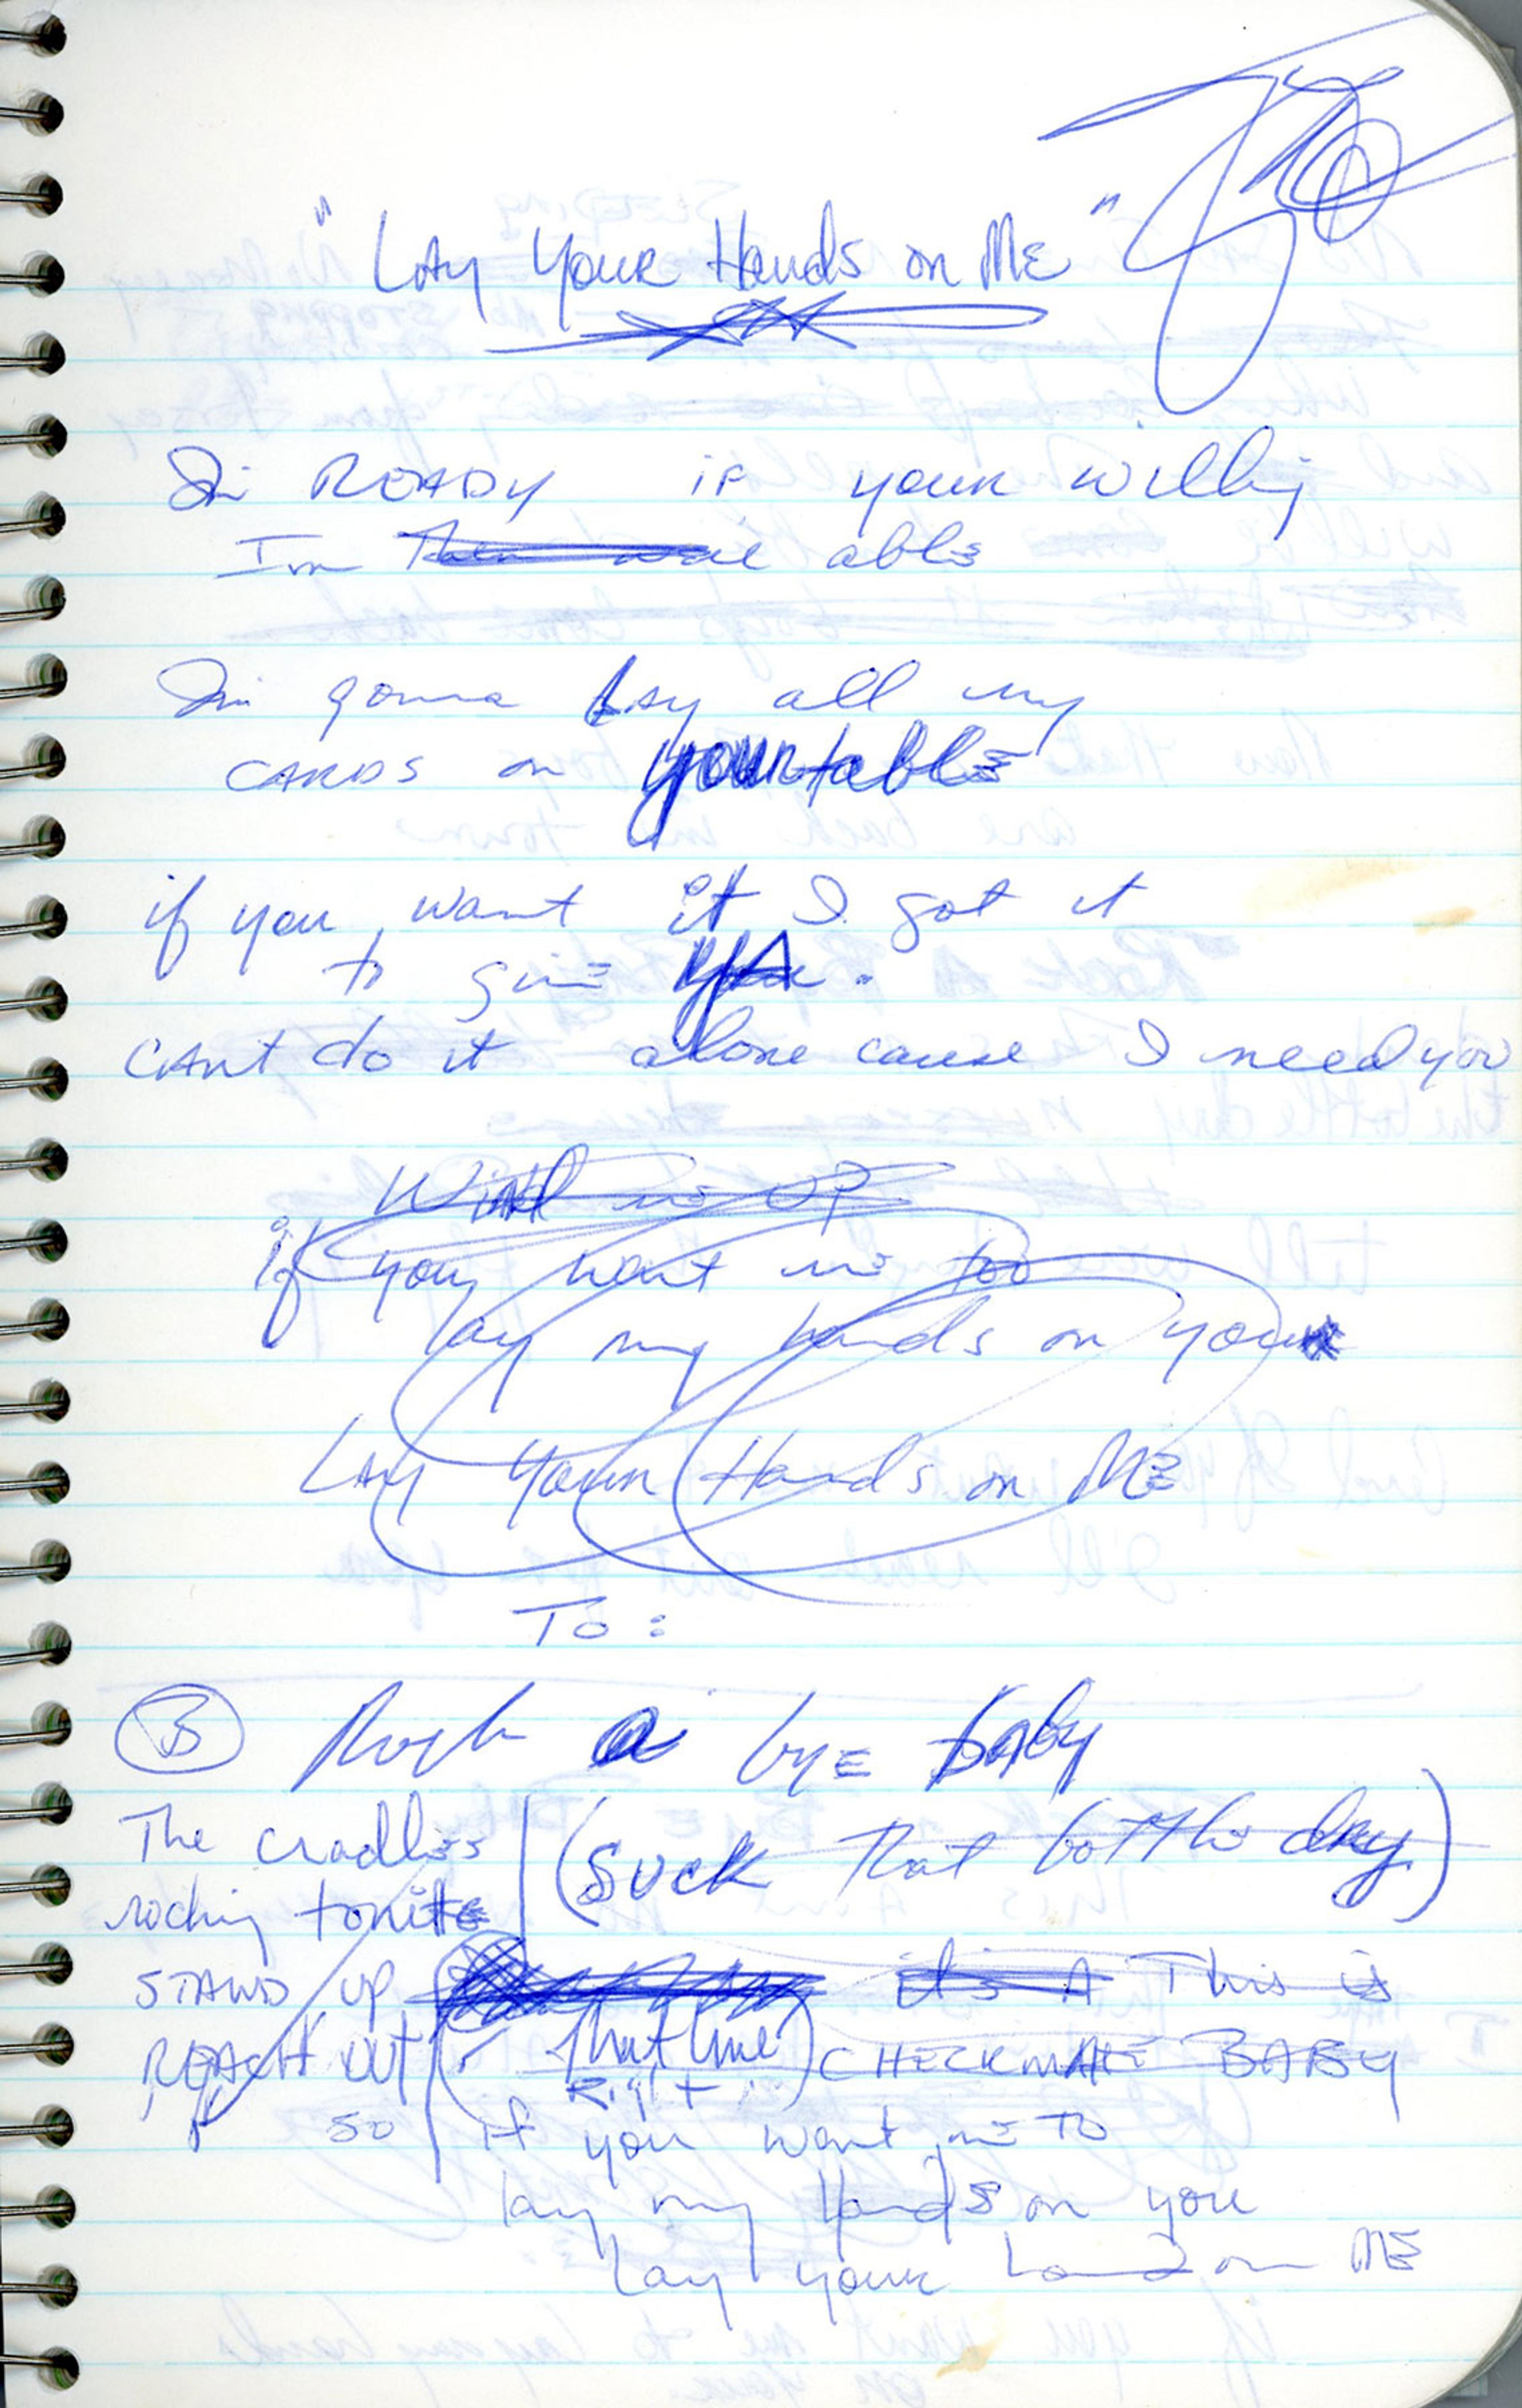 "LAy YOUR Hands on ME"
Im READY if your willing
Im able
Im gonna Lay all my
CARDS on your table
if you want it I got it
to give yA.
CAnt do it alone cause I need you
Wind me UP
if you want me too
lay my hands on you
LAy Your Hands on ME
To:
B Rock a byE bAby
The cradles
rocking tonite
(SUCK that bottle dry)
STAND UP
it's A This is
REACH OUT
that line CHECKMATE BABY
Right
so if you want me TO
lay my Hands on you
Lay your hands on ME